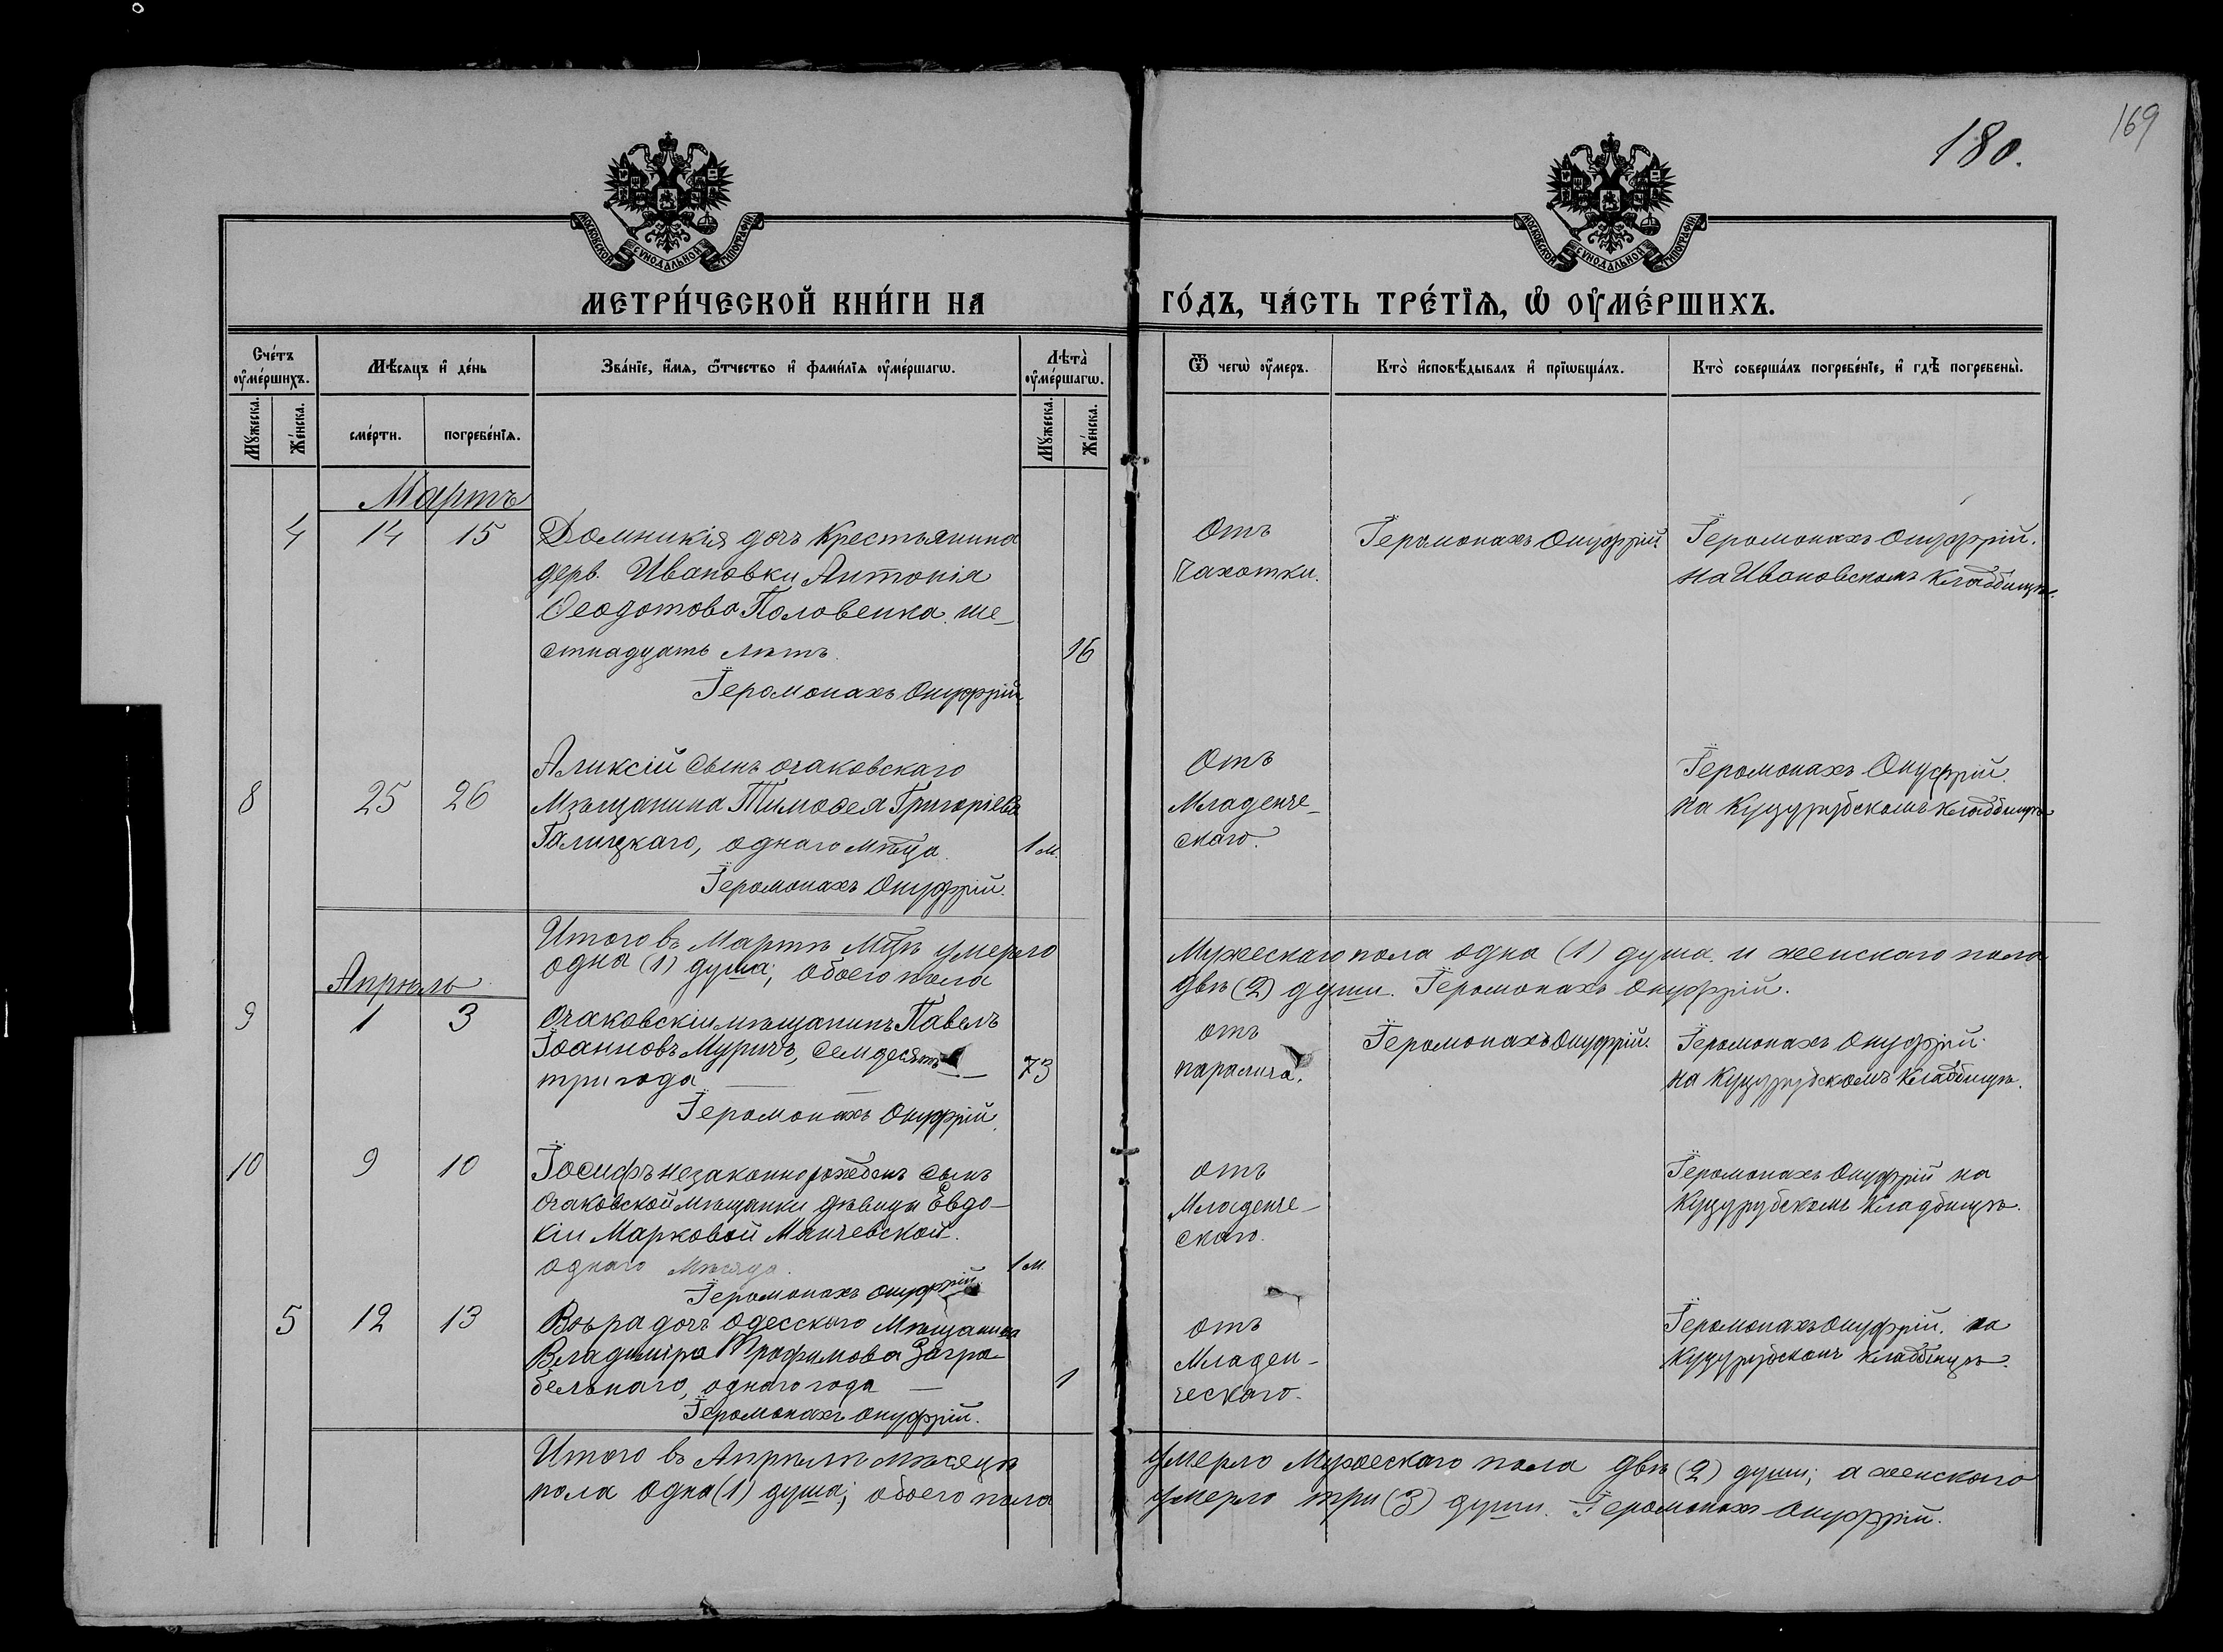 180.
169
МОСКОВСКОЙ СУНОДАЛЬНОЙ ТИПОГРАФІИ
МОСКОВСКОЙ СУНОДАЛЬНОЙ ТИПОГРАФІИ
МЕТРИ́ЧЕСКОЙ КНИ́ГИ НА
ГО́ДЪ, ЧА́СТЬ ТРЕ́ТЇѦ, Ѡ҆ ОУ҆МЕ́РШИХЪ.
Сче́тъ оу҆ме́ршихъ.
Мѣ́сяцъ и҆ де́нь
Зва́нїе, и҆́мѧ, ѻ҆́тчество и҆ фами́лїѧ оу҆ме́ршагѡ.
Лѣта̀ оу҆ме́ршагѡ.
Ѿ чегѡ̀ оу҆́меръ.
Кто̀ и҆сповѣ́дывалъ и҆ прїѡбща́лъ.
Кто̀ соверша́лъ погребе́нїе, и҆ гдѣ̀ погребены̀.
Му́жеска.
Же́нска.
сме́рти.
погребе́нїѧ.
Му́жеска.
Же́нска.
Мартъ
4 14 15 Домникія дочь Крестьянина
дерв. Ивановки Антонія
Феодотова Половенка. ше-
стнадцать лѣтъ. 16
Іеромонахъ Онуфрій
Отъ
Чахотки.
Іеромонахъ Онуфрій.
Іеромонахъ Онуфрій.
на Ивановскомъ Кладбищѣ.
Аликсій сынъ очаковскаго
8 25 26 Мѣщанина Тимофея Григоріева
Галицкаго, однаго мѣца. 1 м.
Іеромонахъ Онуфрій.
Отъ
Младенче-
скаго.
Іеромонахъ Онуфрій.
на Куцурубскомъ кладбищѣ
Итого въ Мартѣ Мцѣ умерло
одна (1) душа; обоего пола
Мужескаго пола одна (1) душа и женскаго пола
двѣ (2) души. Іеромонахъ Онуфрій.
Апрѣль
9 1 3 Очаковскій мѣщанинъ Павелъ
Іоанновъ Муричъ, семдесятъ
три года 73
Іеромонахъ Онуфрій.
отъ
паралича.
Іеромонахъ Онуфрій.
Іеромонахъ Онуфрій.
на Куцурубскомъ Кладбищѣ.
10 9 10 Іосифъ незаконнорожденъ сынъ
Очаковской мѣщанки дѣвицы Евдо-
кіи Марковой Манчевской.
однаго мѣсяца. 1 м.
Іеромонахъ Онуфрій.
отъ
Младенче-
скаго.
Іеромонахъ Онуфрій на
Куцурубскомъ Кладбищѣ.
5 12 13 Вѣра дочь Одесскаго Мѣщанина
Владиміра Трофимова Загра-
бельнаго, однаго года 1
Іеромонахъ Онуфрій.
отъ
Младен-
ческаго.
Іеромонахъ Онуфрій. на
Куцурубскомъ кладбищѣ.
Итого въ Апрѣлѣ мѣсяцѣ
пола одна (1) душа; обоего пола
умерло Мужескаго пола двѣ (2) души; а женскаго
умерло три (3) души. Іеромонахъ Онуфрій.